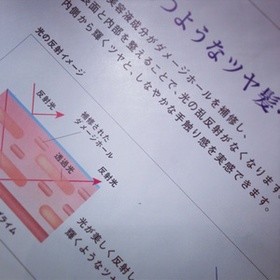 つようなツヤ髪
美容液成分がダメージホールを補修し、
表面と内部を整えることで、光の乱反射がなくなります。
内側から輝くツヤと、しなやかな手触り感を実感できます。
光の反射イメージ
反射光
補修された
ダメージホール
透過光
反射光
光が美しく反射し
輝くようなツヤ